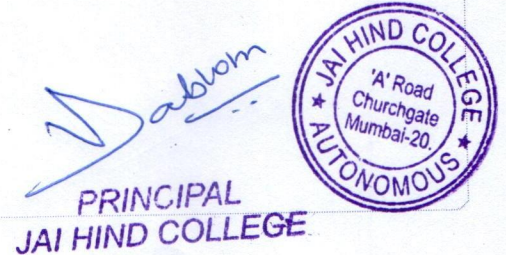 PRINCIPAL
JAI HIND COLLEGE
JAI HIND COLLEGE
AUTONOMOUS
'A' Road
Churchgate
Mumbai-20.